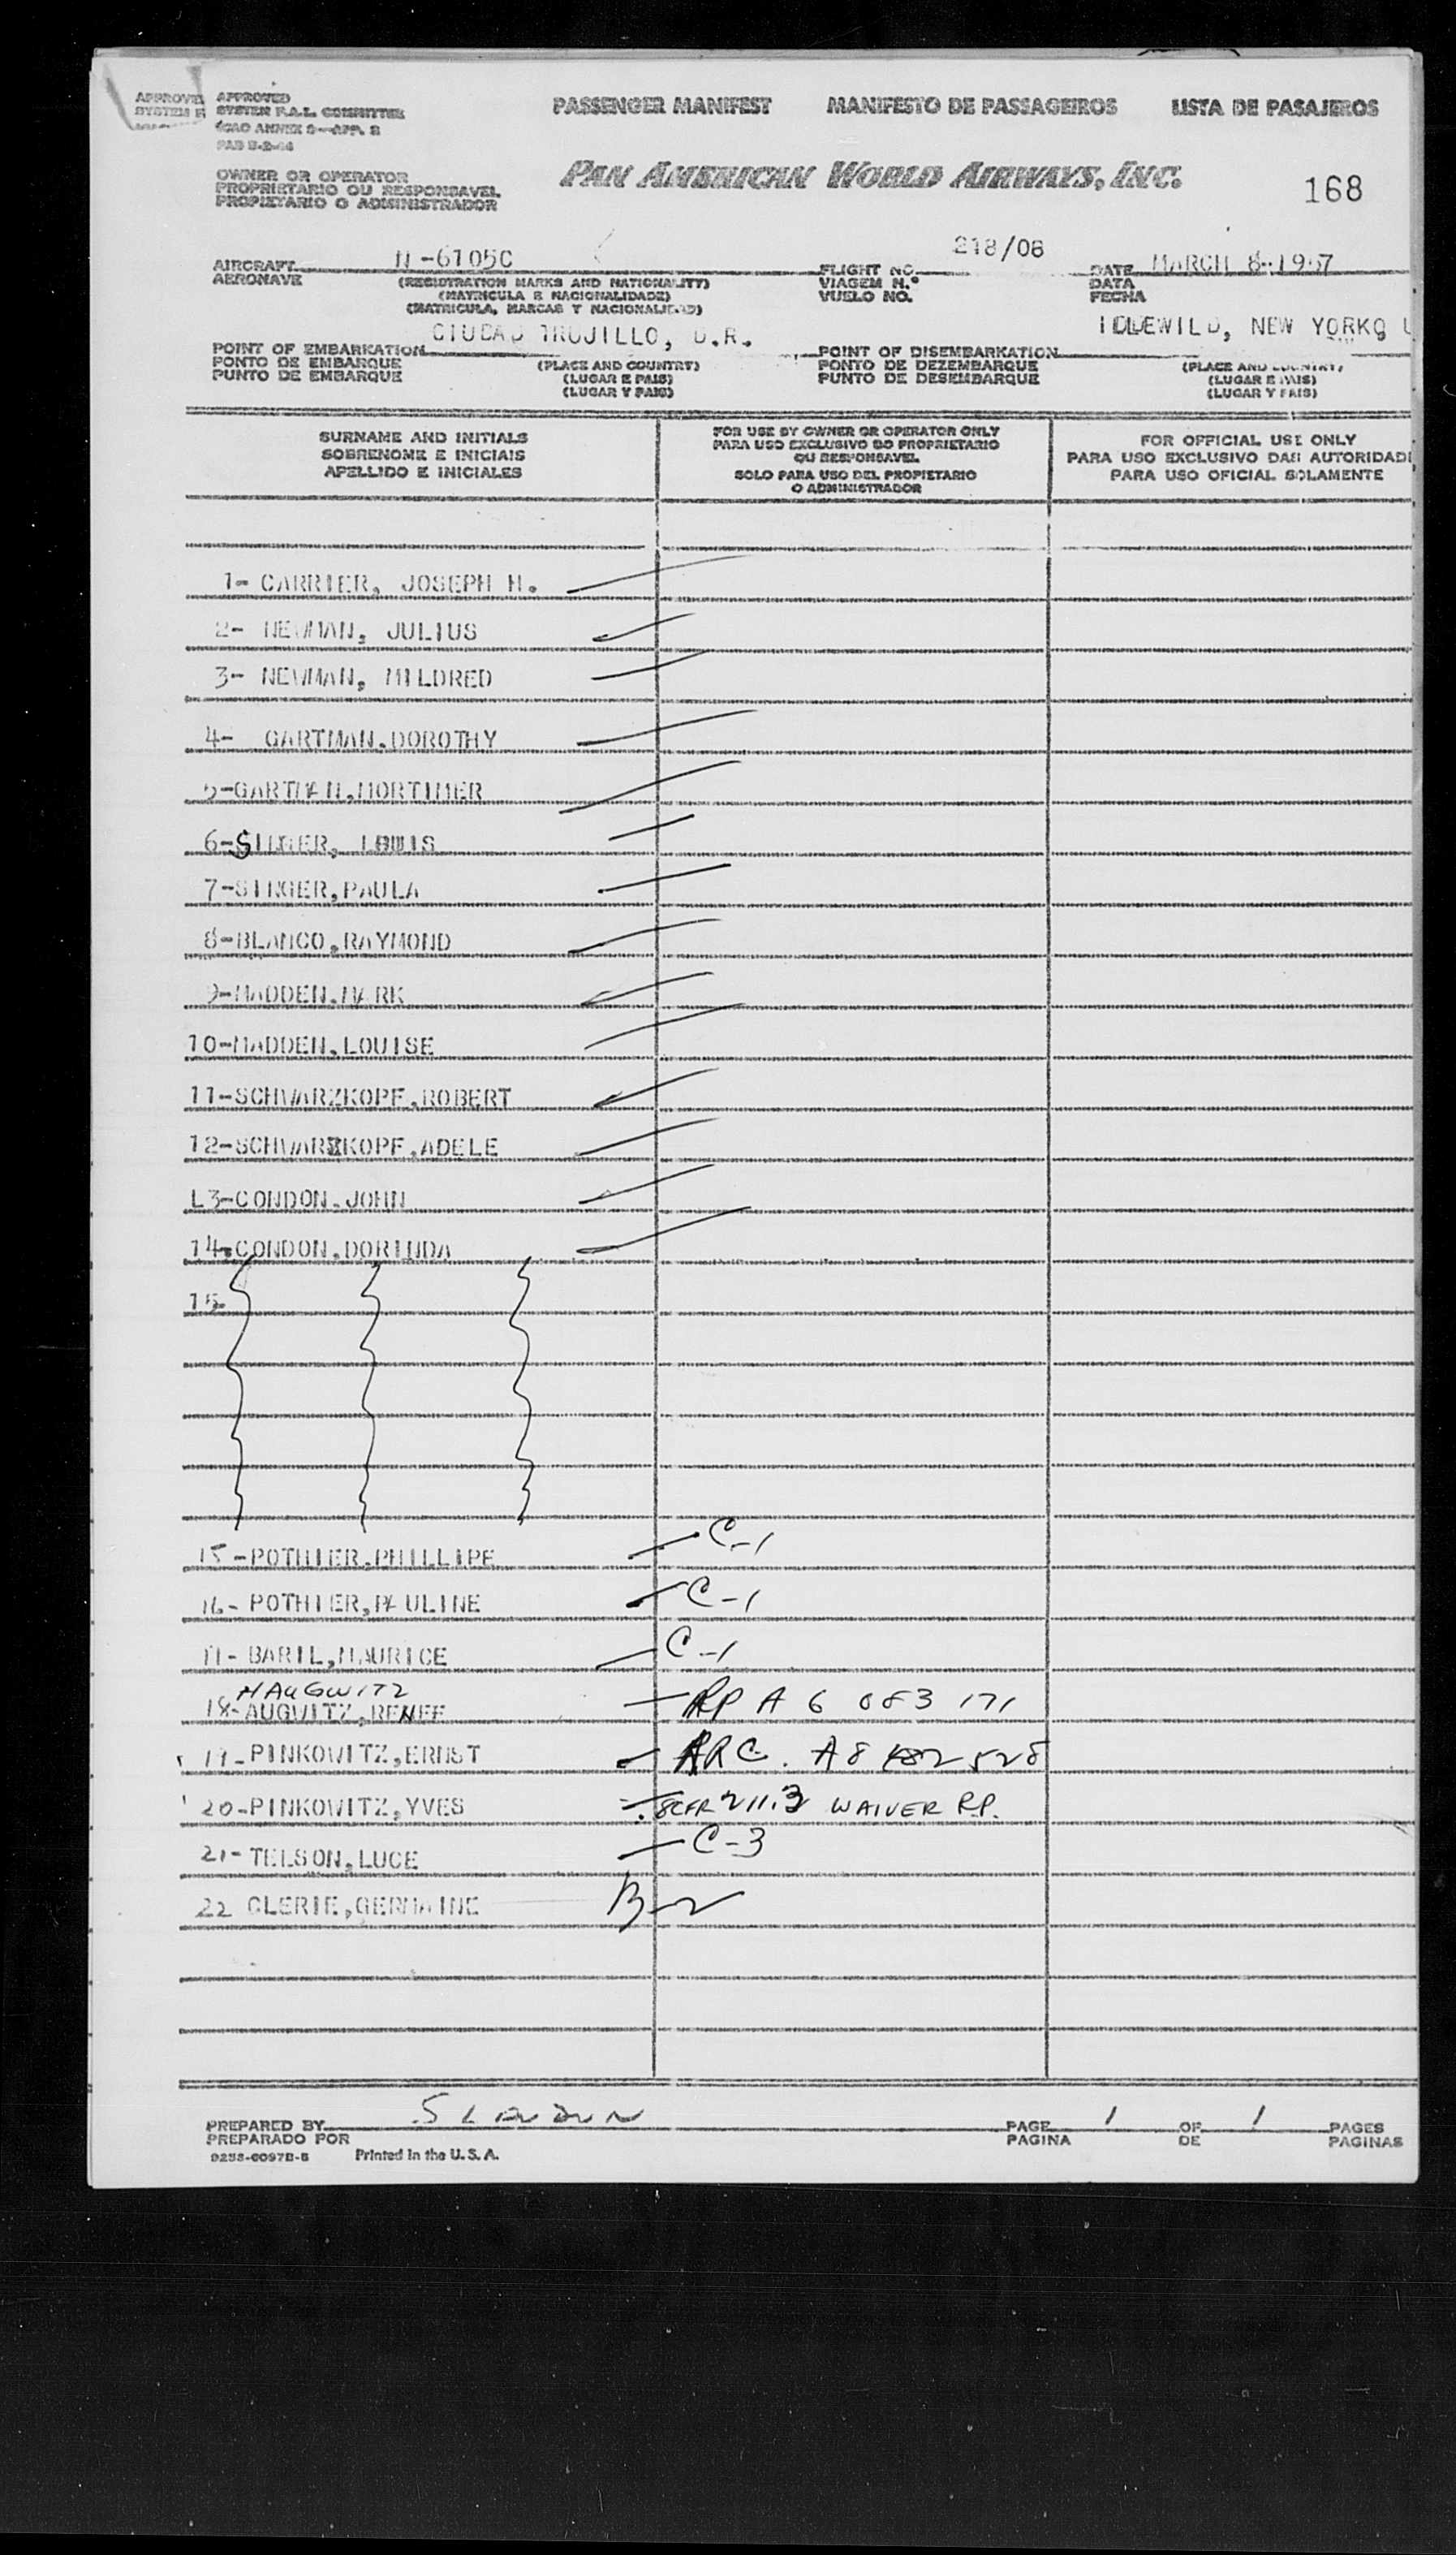 APPROVED
SYSTEM F.A.L. COMMITTEE
ICAO ANNEX 9—APP. 2
PASSENGER MANIFEST MANIFESTO DE PASSAGEIROS LISTA DE PASAJEROS
OWNER OR OPERATOR
PROPRIETARIO OU RESPONSAVEL
PROPIETARIO O ADMINISTRADOR
PAN AMERICAN WORLD AIRWAYS, INC.
168
AIRCRAFT N-6105C FLIGHT NO. 218/08 DATE MARCH 8-1957
AERONAVE (REGISTRATION MARKS AND NATIONALITY) VIAGEM N.º DATA
(MATRICULA E NACIONALIDADE) VUELO NO. FECHA
(MATRICULA, MARCAS Y NACIONALIDAD)
POINT OF EMBARKATION CIUDAD TRUJILLO, D.R. POINT OF DISEMBARKATION IDLEWILD, NEW YORKQ U
PONTO DE EMBARQUE (PLACE AND COUNTRY) PONTO DE DEZEMBARQUE (PLACE AND COUNTRY)
PUNTO DE EMBARQUE (LUGAR E PAIS) PUNTO DE DESEMBARQUE (LUGAR E PAIS)
(LUGAR Y PAIS) (LUGAR Y PAIS)
SURNAME AND INITIALS
SOBRENOME E INICIAIS
APELLIDO E INICIALES
FOR USE BY OWNER OR OPERATOR ONLY
PARA USO EXCLUSIVO DO PROPRIETARIO
OU RESPONSAVEL
SOLO PARA USO DEL PROPIETARIO
O ADMINISTRADOR
FOR OFFICIAL USE ONLY
PARA USO EXCLUSIVO DAS AUTORIDAD
PARA USO OFICIAL SOLAMENTE
1- CARRIER, JOSEPH H.
2- NEWMAN, JULIUS
3- NEWMAN, MILDRED
4- GARTMAN,DOROTHY
5-GARTMAN,MORTIMER
6-SINGER, LOUIS
7-SINGER,PAULA
8-BLANCO,RAYMOND
9-MADDEN,MARK
10-MADDEN,LOUISE
11-SCHWARZKOPF,ROBERT
12-SCHWARZKOPF,ADELE
L3-CONDON,JOHN
14-CONDON,DORINDA
15-
15-POTHIER,PHILLIPE C-1
16- POTHIER,PAULINE C-1
17- BARIL,MAURICE C-1
HAUGWITZ
18-AUGWITZ,RENEE RP A 6 083 171
19-PINKOWITZ,ERNST ARC. A8 182 528
20-PINKOWITZ,YVES 8CFR 211.3 WAIVER P.P.
21- TELSON,LUCE C-3
22 CLERIE,GERMAINE B-2
PREPARED BY PAGE 1 OF 1 PAGES
PREPARADO POR PAGINA DE PAGINAS
Printed in the U.S.A.